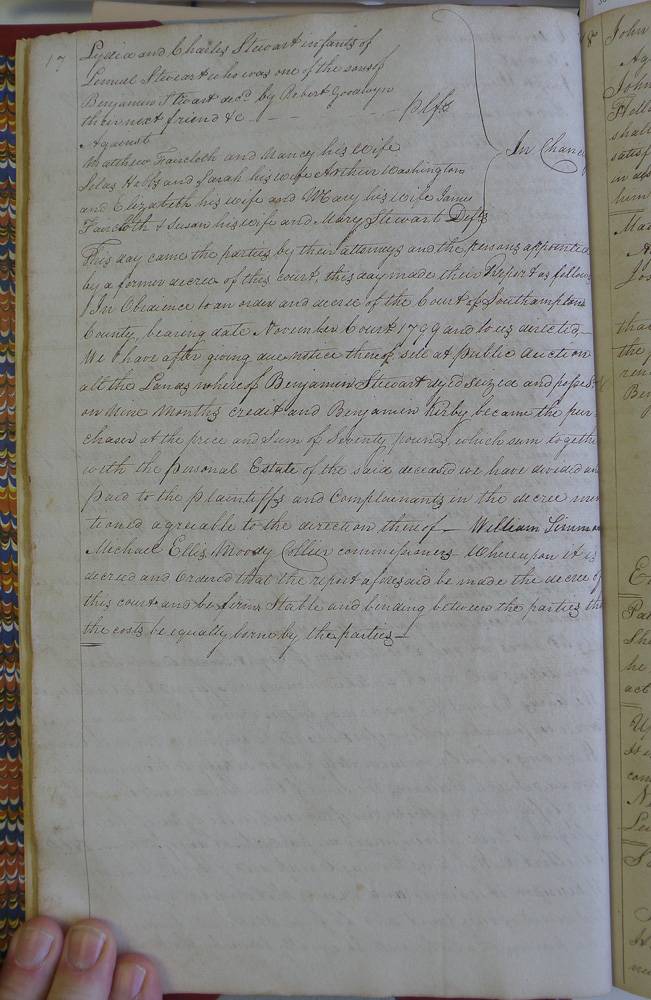 17 Lydia and Charles Stewart infants of
Lemuel Stewart who was one of the sons of
Benjamin Stewart decd. by Robert Goodwyn
their next friend &c - - - - plfts
Against
Matthew Faircloth and Nancy his Wife
Silas Hobbs and Sarah his wife Arthur Washington
and Elizabeth his wife and Mary his wife James
Faircloth & Susan his wife and Mary Stewart Defts
In Chancey
This day came the parties by their attorneys and the persons appointed
by a former decree of this court, this day made their Report as follows
In Obedience to an order and decree of the Court of Southampton
County, bearing date November Court 1799 and to us directed,
We have after giving due notice thereof sold at public auction
all the Lands whereof Benjamin Stewart dyed seized and possess
on Nine Months credit and Benjamin Kirby became the pur-
chaser at the price and Sum of Seventy pounds, which sum together
with the personal Estate of the said deceased we have divided and
paid to the plaintiffs and Complainants in the decree men
tioned agreeable to the direction thereof - William Simmons
Michael Ellis Moody Collier commissioners Whereupon it is
decreed and Ordered that the report aforesaid be made the decree of
this court and be firm Stable and binding between the parties th
the costs be equally borne by the parties -
18 John
Ag
John
shall
satisf
him
Ma
Jos
than
the
ren
Ben
Pa
She
he
act
Up
com